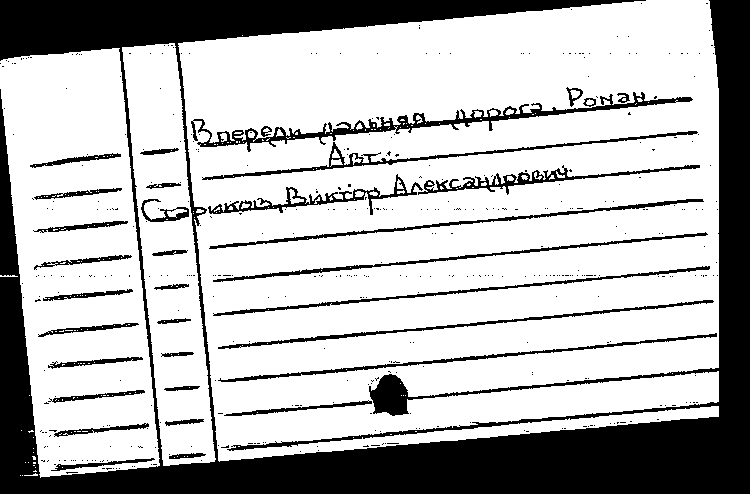 Впереди дальняя дорога. Роман.
Авт.:
Стариков, Виктор Александрович